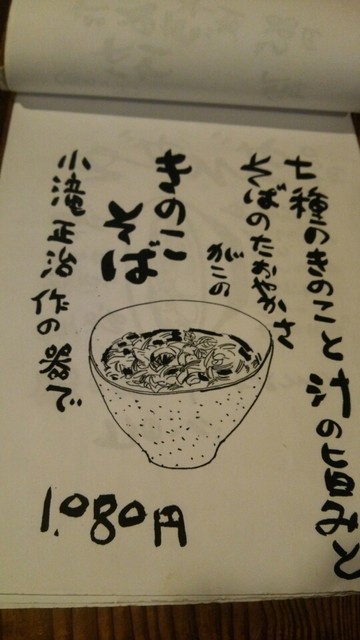 七種のきのこと汁の旨みと
そばのたおやかさ
がこの
きのこ
そば
小滝正治作の器で
1.080円